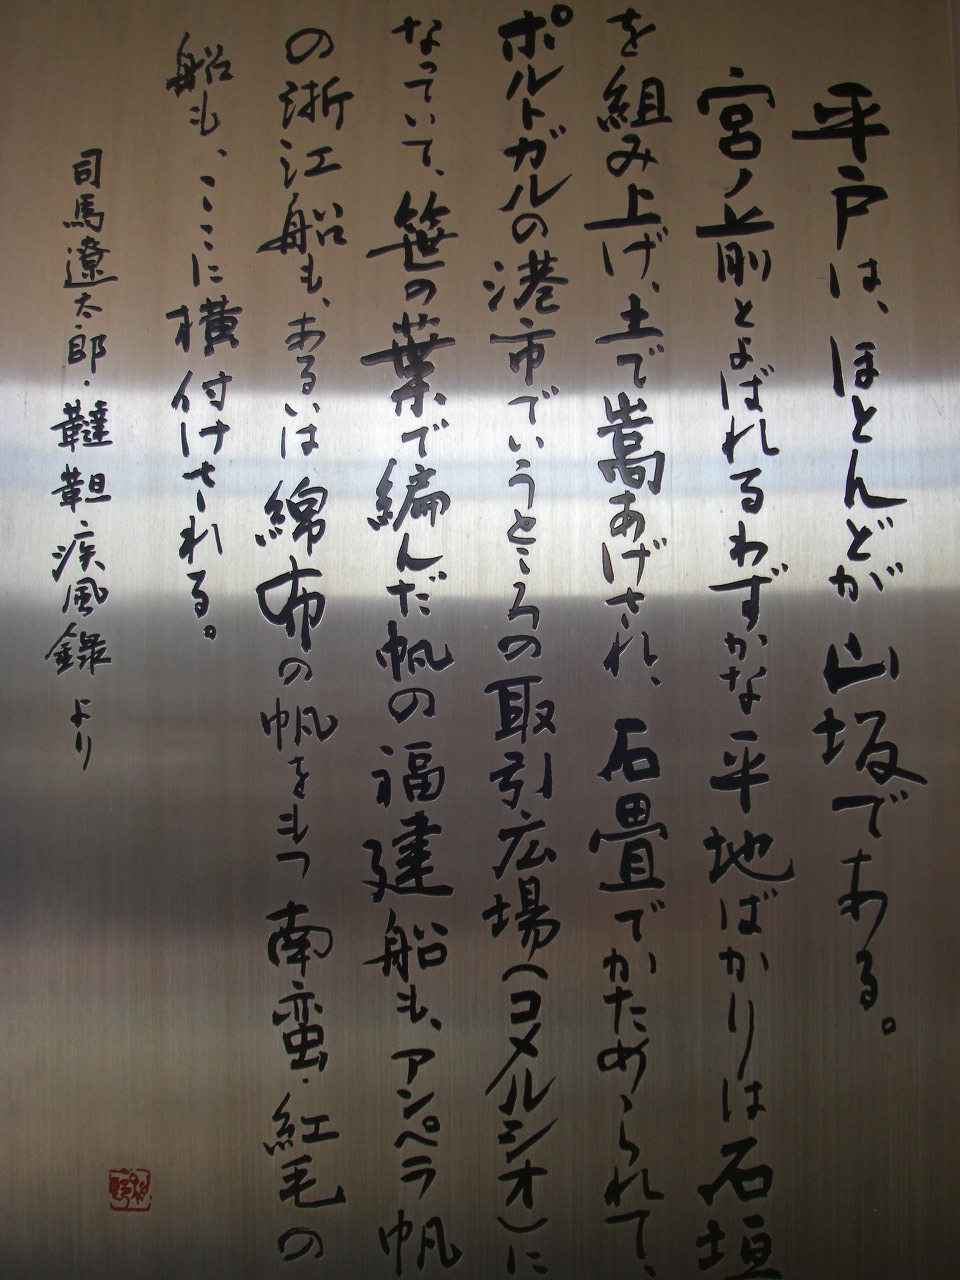 平戸は、ほとんどが山坂である。
宮ノ前とよばれるわずかな平地ばかりは石垣
を組み上げ、土で嵩あげされ、石畳でかためられて、
ポルトガルの港市でいうところの取引広場(コメルシオ)に
なっていて、笹の葉で編んだ帆の福建船も、アンペラ帆
の浙江船も、あるいは綿布の帆をもつ南蛮・紅毛の
船も、ここに横付けされる。
司馬遼太郎・韃靼疾風録より